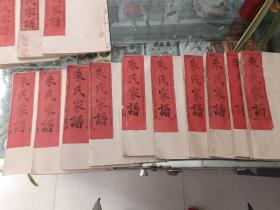 譜
譜
朱氏家譜
朱氏家譜
朱氏家譜
朱氏家譜
朱氏家譜
朱氏家譜
朱氏家譜
朱氏家譜